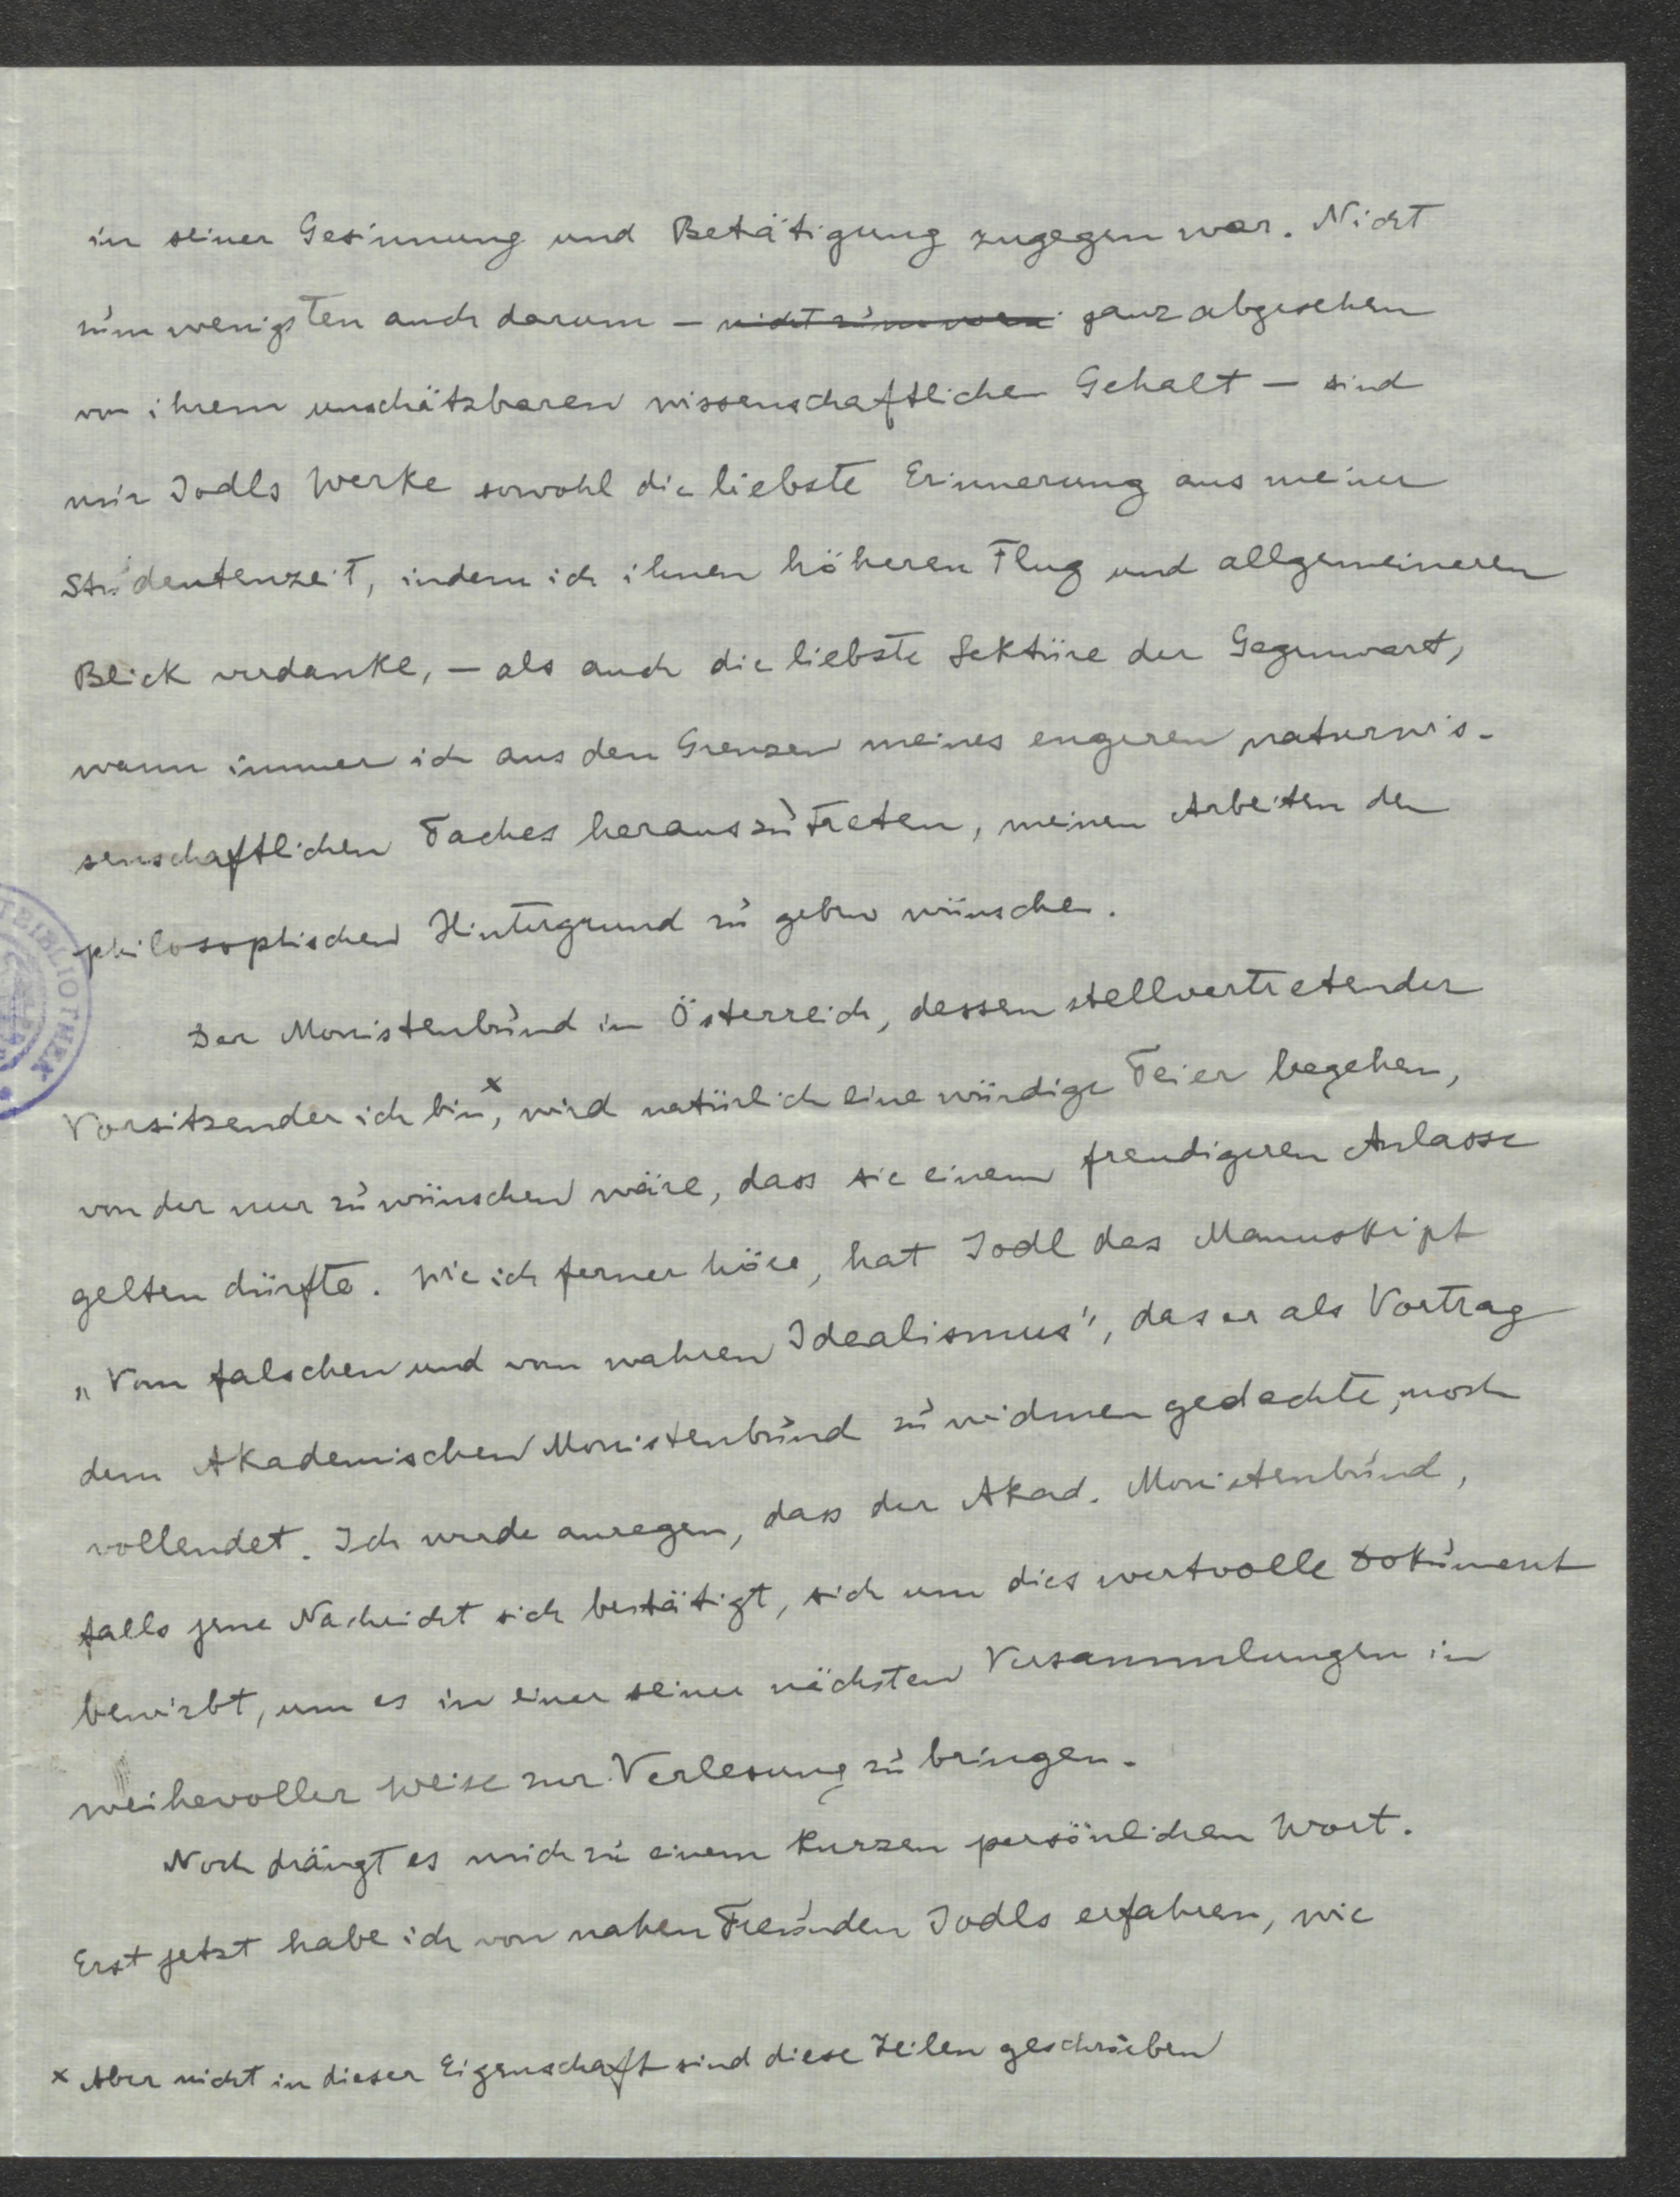 in seiner Gesinnung und Betätigung zugegen war. Nicht
zum wenigsten auch darum – nicht zum weni ganz abgesehen
von ihrem unschätzbaren wissenschaftlichen Gehalt – sind
mir Jodls Werke sowohl die liebste Erinnerung aus meiner
Studentenzeit, indem ich ihnen höheren Flug und allgemeineren
Blick verdanke, – als auch die liebste Lektüre der Gegenwart,
wann immer ich aus den Grenzen meines engeren naturwis-
senschaftlichen Faches herauszutreten, meinen Arbeiten den
philosophischen Hintergrund zu geben wünsche.
Der Monistenbund in Österreich, dessen stellvertretender
Vorsitzender ich bin x, wird natürlich eine würdige Feier begehen,
von der nur zu wünschen wäre, dass sie einem freudigeren Anlasse
gelten dürfte. Wie ich ferner höre, hat Jodl das Manuskript
„Vom falschen und vom wahren Idealismus", das er als Vortrag
dem Akademischen Monistenbund zu widmen gedachte, noch
vollendet. Ich werde anregen, dass der Akad. Monistenbund,
falls jene Nachricht sich bestätigt, sich um dies wertvolle Dokument
bewirbt, um es in einer seiner nächsten Versammlungen in
weihevoller Weise zur Verlesung zu bringen.
Noch drängt es mich zu einem kurzen persönlichen Wort.
Erst jetzt habe ich von nahen Freunden Jodls erfahren, wie
x Aber nicht in dieser Eigenschaft sind diese Zeilen geschrieben
BIBLIOTHEK